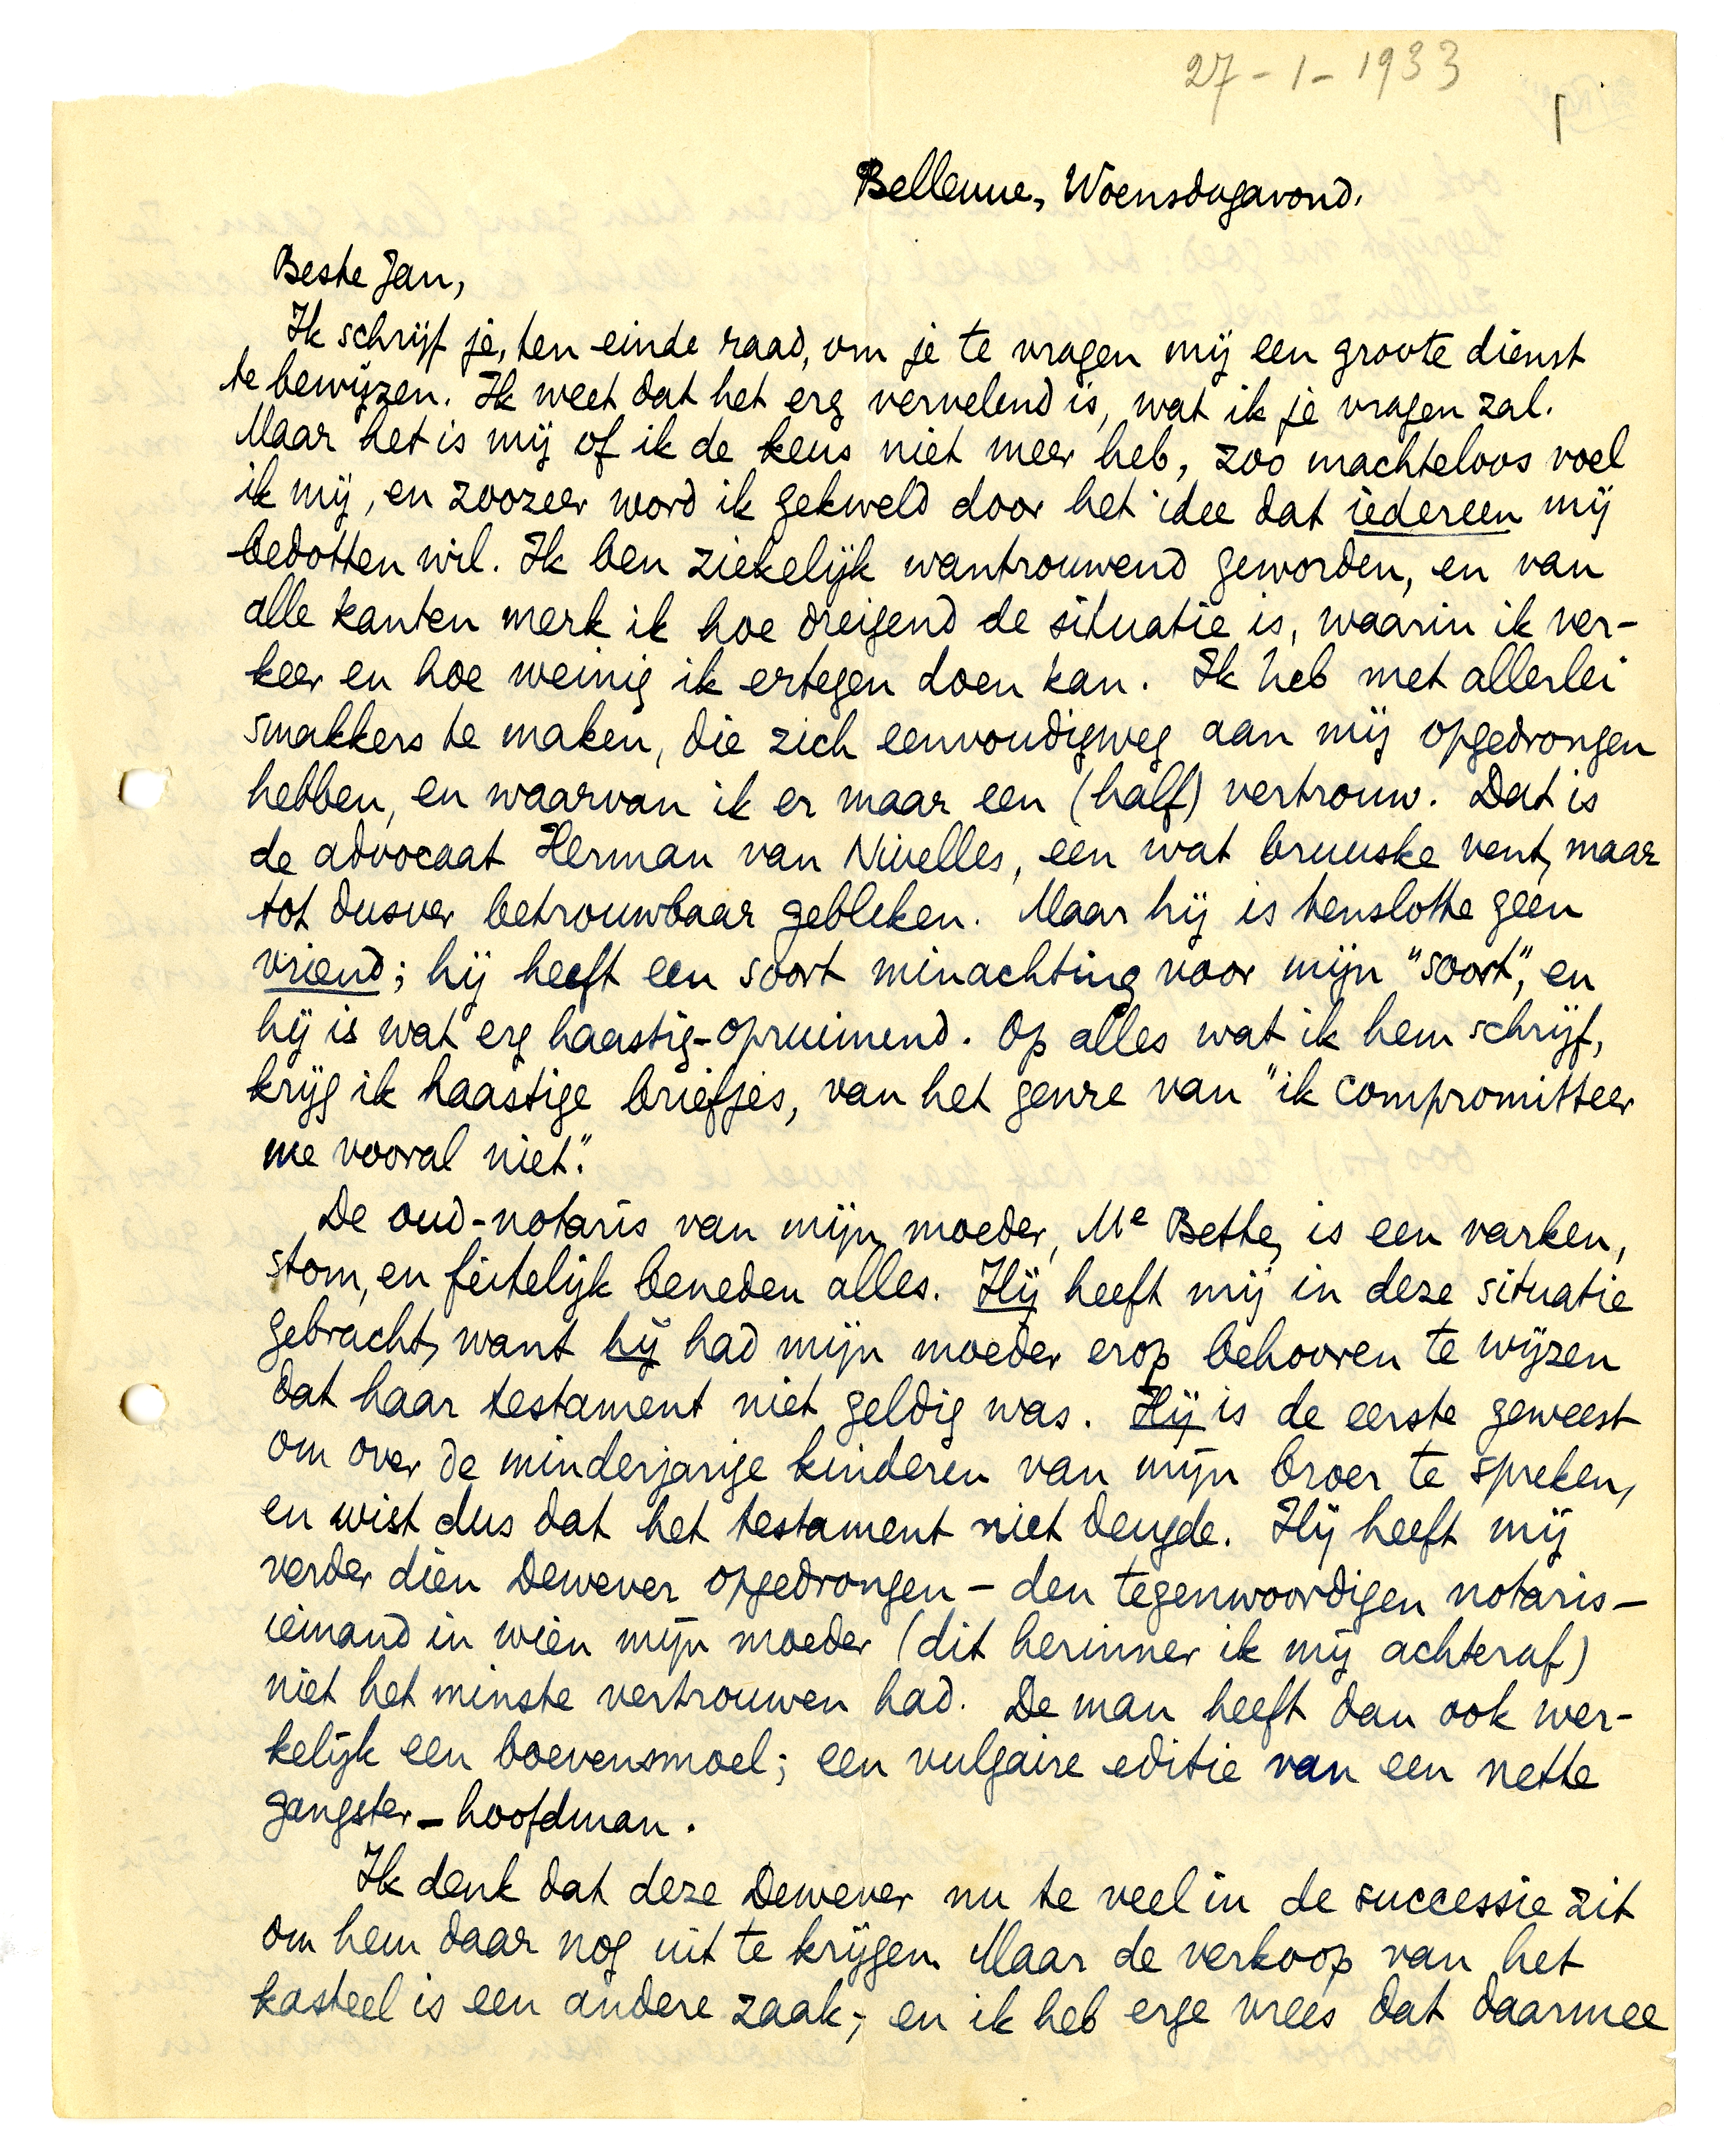 27-1-1933
1
Bellevue, Woensdagavond.
Beste Jan,
Ik schrijf je, ten einde raad, om je te vragen mij een groote dienst
te bewijzen. Ik weet dat het erg vervelend is, wat ik je vragen zal.
Maar het is mij of ik de keus niet meer heb, zoo machteloos voel
ik mij, en zoozeer word ik gekweld door het idee dat iedereen mij
bedotten wil. Ik ben ziekelijk wantrouwend geworden, en van
alle kanten merk ik hoe dreigend de situatie is, waarin ik ver-
keer en hoe weinig ik ertegen doen kan. Ik heb met allerlei
smakkers te maken, die zich eenvoudigweg aan mij opgedrongen
hebben, en waarvan ik er maar een (half) vertrouw. Dat is
de advocaat Herman van Nivelles, een wat bruuske vent, maar
tot dusver betrouwbaar gebleken. Maar hij is tenslotte geen
vriend; hij heeft een soort minachting voor mijn "soort", en
hij is wat erg haastig-opruimend. Op alles wat ik hem schrijf,
krijg ik haastige briefjes, van het genre van "ik compromitteer
me vooral niet".
De oud-notaris van mijn moeder, Me Bette, is een varken,
stom, en feitelijk beneden alles. Hij heeft mij in deze situatie
gebracht, want hij had mijn moeder erop behooren te wijzen
dat haar testament niet geldig was. Hij is de eerste geweest
om over de minderjarige kinderen van mijn broer te spreken,
en wist dus dat het testament niet deugde. Hij heeft mij
verder dien Dewever opgedrongen – den tegenwoordigen notaris –
iemand in wien mijn moeder (dit herinner ik mij achteraf)
niet het minste vertrouwen had. De man heeft dan ook wer-
kelijk een boevensmoel; een vulgaire editie van een nette
gangster-hoofdman.
Ik denk dat deze Dewever nu te veel in de successie zit
om hem daar nog uit te krijgen. Maar de verkoop van het
kasteel is een andere zaak; en ik heb erge vrees dat daarmee